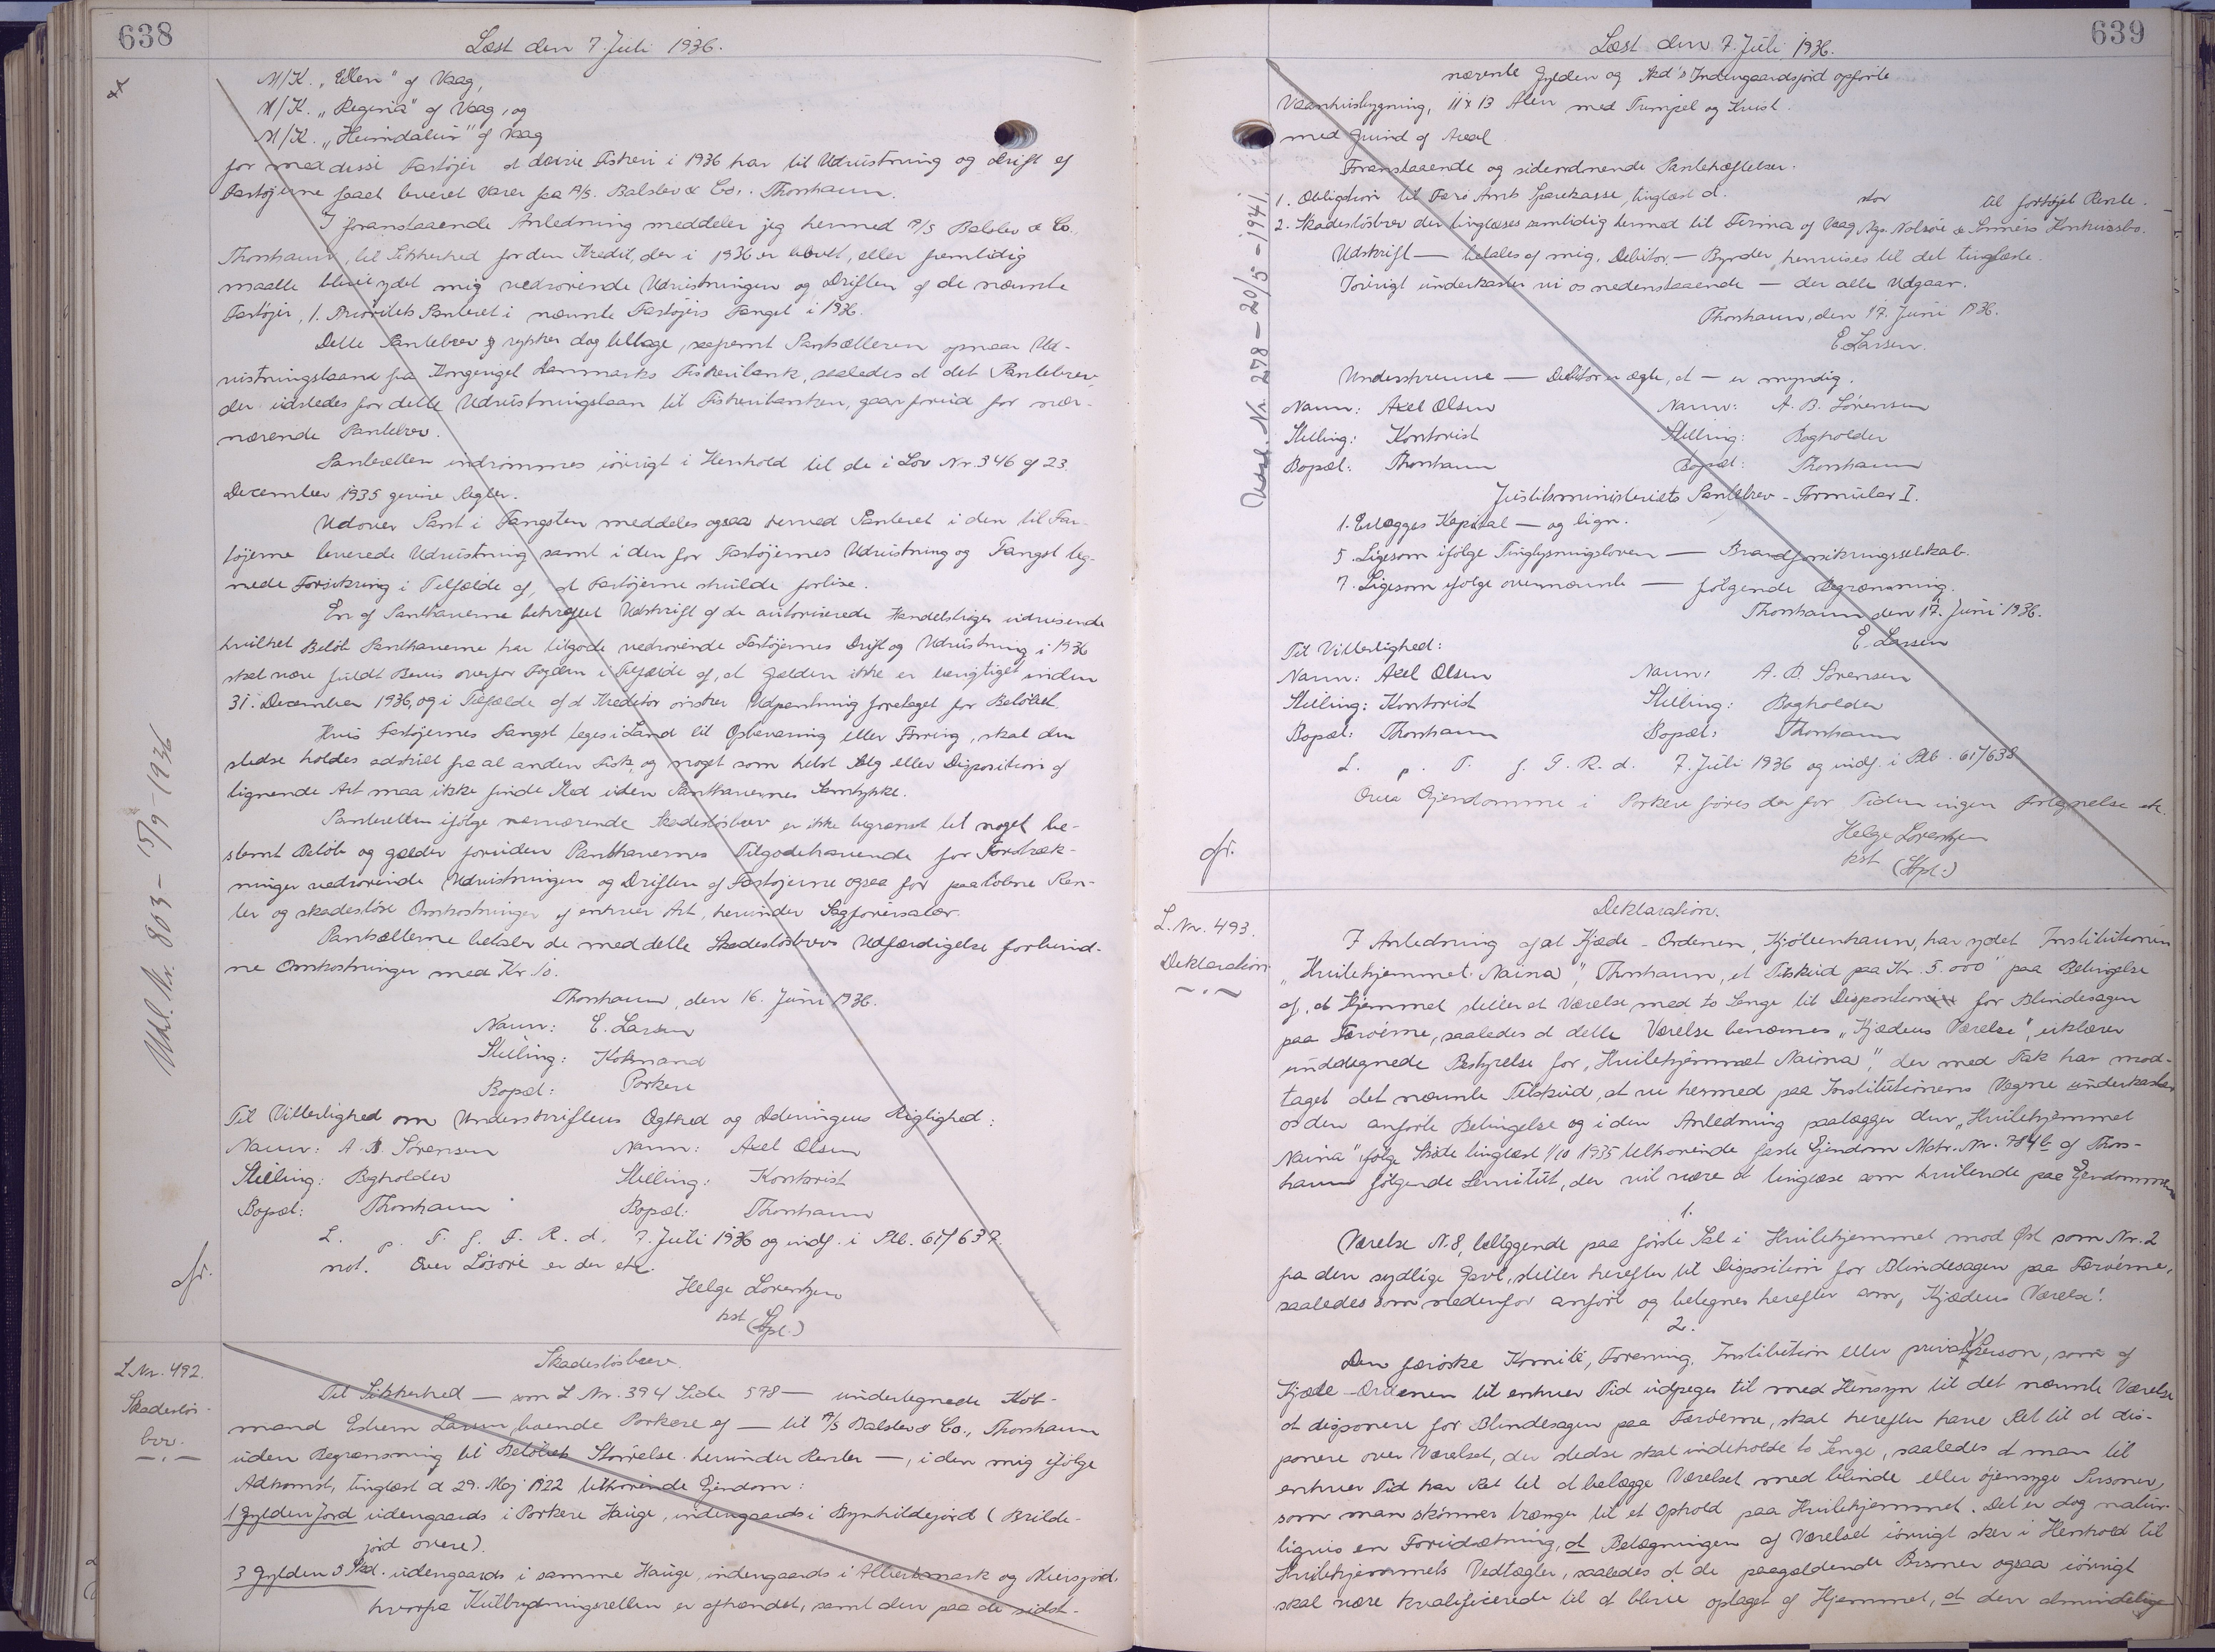 638
Læst den 7. Juli 1936.
M/K. „Ellen" af Vaag,
M/K. „Regina" af Vaag, og
M/K. „Heimdalur" af Vaag
for med disse Fartøjer at drive Fiskeri i 1936 har til Udrustning og Drift af
Fartøjerne faaet leveret Varer fra A/S. Balslev & Co., Thorshavn.
I foranstaaende Anledning meddeler jeg herved A/S Balslev & Co.
Thorshavn, til Sikkerhed for den Kredit, der i 1936 er blevet, eller fremtidig
maatte blive ydet mig vedrørende Udrustningen og Driften af de nævnte
Fartøjer, 1. Prioritets Panteret i nævnte Fartøjers Fangst i 1936.
Dette Pantebrev rykker dog tilbage, saafremt Pantsætteren opnaar Ud-
rustningslaan fra Kongeriget Danmarks Fiskeribank, saaledes at det Pantebrev,
der udstedes for dette Udrustningslaan til Fiskeribanken, gaar forud for nær-
værende Pantebrev.
Panteretten indrømmes iøvrigt i Henhold til de i Lov Nr. 346 af 23.
December 1935 givne Regler.
Udover Pant i Fangsten meddeles ogsaa herved Panteret i den til Far-
tøjerne leverede Udrustning samt i den for Fartøjernes Udrustning og Fangst teg-
nede Forsikring i Tilfælde af, at Fartøjerne skulde forlise.
En af Panthaverne bekræftet Udskrift af de autoriserede Handelsbøger udvisende
hvilket Beløb Panthaverne har tilgode vedrørende Fartøjernes Drift og Udrustning i 1936
skal være fuldt Bevis overfor Fogden i Tilfælde af, at Gælden ikke er berigtiget inden
31. December 1936, og i Tilfælde af at Kreditor ønsker Udpantning foretaget for Beløbet.
Hvis Fartøjernes Fangst tages i Land til Opbevaring eller Tørring, skal den
stedse holdes adskilt fra al anden Fisk, og noget som helst Salg eller Disposition af
lignende Art maa ikke finde Sted uden Panthavernes Samtykke.
Panteretten ifølge nærværende Skadesløsbrev er ikke begrænset til noget be-
stemt Beløb og gælder foruden Panthavernes Tilgodehavende for Forstræk-
ninger vedrørende Udrustningen og Driften af Fartøjerne ogsaa for paaløbne Ren-
ter og skadesløse Omkostninger af enhver Art, herunder Sagførersalær.
Pantsætterne betaler de med dette Skadesløsbrevs Udfærdigelse forbund-
ne Omkostninger med Kr. 10.
Thorshavn, den 16. Juni 1936.
Navn: E. Larsen
Stilling: Købmand
Bopæl: Porkere
Til Vitterlighed om Underskriftens Ægthed og Dateringens Rigtighed:
Navn: A. B. Sørensen Navn: Axel Olsen
Stilling: Bogholder Stilling: Kontorist
Bopæl: Thorshavn Bopæl: Thorshavn
L. p. T. f. F. R. d. 7. Juli 1936 og indf. i Ptb. 61/637.
not. Over Løsøre er der etc.
Helge Lorentzen
kst
(Stpl.)
Udsl. Nr. 803 - 15/9-1936
cfr.
L Nr. 492.
Skadesløs-
brv.
Skadesløsbrev.
Til Sikkerhed — som L Nr. 394 Side 578 — undertegnede Køb-
mand Esbern Larsen, boende Porkere ef — til A/S Balslev & Co., Thorshavn
uden Begrænsning til Beløbets Størrelse herunder Renter —, i den mig ifølge
Adkomst, tinglæst d. 29. Maj 1922 tilhørende Ejendom:
1 Gylden Jord udengaards i Porkere Hauge, indengaards i Brynhildejord (Brilde-
jord overe).
3 Gylden 3 Skd. udengaards i samme Hauge, indengaards i Albertsmark og Akersjord,
hvorfra Kultbrydningsretten er afhændet, samt den paa de sidst-
639
Læst den 7. Juli 1936.
nævnte Gylden og Skd's Indengaardsjord opførte
Vaanhusbygning, 11 x 13 Alen med Trempel og Kvist.
med Grund af Areal.
Foranstaaende og sideordnende Pantehæftelser.
1. Obligation til Færø Amts Sparekasse, tinglæst d. stor til forhøjet Rente.
2. Skadesløsbrev der tinglæses samtidig hermed til Firma af Vaag Mgr. Nolsøe & Sønners Konkursbo.
Udskrift — betales af mig, Debitor. — Byrder henvises til det tinglæste.
Iøvrigt underkaster vi os nedenstaaende — der alle Udgaar.
Thorshavn, den 17. Juni 1936.
E. Larsen.
Underskrevne — Debitor er ægte, at — er myndig.
Navn: Axel Olsen Navn: A. B. Sørensen
Stilling: Kontorist Stilling: Bogholder
Bopæl: Thorshavn Bopæl: Thorshavn
Justitsministeriets Pantebrev - Formular I.
1. Erlægges Kapital — og lign.
5. Ligesom ifølge Tinglysningsloven — Brandforsikringsselskab.
7. Ligesom ifølge ovennævnte — følgende Begrænsning.
Thorshavn den 17. Juni 1936.
E. Larsen
Til Vitterlighed:
Navn: Axel Olsen Navn: A. B. Sørensen
Stilling: Kontorist Stilling: Bogholder
Bopæl: Thorshavn Bopæl: Thorshavn
L. p. T. f. F. R. d. 7. Juli 1936 og indf. i Ptb. 61/638
Over Ejendomme i Porkere føres der for Tiden ingen Fortegnelse etc.
Helge Lorentzen
kst
(Stpl.)
Udsl. Nr. 278 - 20/5 - 1941.
cfr.
L. Nr. 493.
Deklaration
Deklaration.
I Anledning af at Kjæde-Ordenen, Kjøbenhavn, har ydet Institutionen
„Hvilehjemmet Naina", Thorshavn, et Tilskud paa Kr. 5.000 paa Betingelse
af, at Hjemmet stiller et Værelse med to Senge til Disposition for Blindesagen
paa Færøerne, saaledes at dette Værelse benævnes „Kjædens Værelse", erklærer
undertegnede Bestyrelse for „Hvilehjemmet Naina", der med Tak har mod-
taget det nævnte Tilskud, at vi hermed paa Institutionens Vegne underkaster
os den anførte Betingelse og i den Anledning paalægger den „Hvilehjemmet
Naina" ifølge Skøde tinglæst 1/10 1935 tilhørende faste Ejendom Matr. Nr. 784b af Thors-
havn følgende Servitut, der vil være at tinglæse som hvilende paa Ejendommen
1.
Værelse N. 8, beliggende paa første Sal i Hvilehjemmet mod Øst som Nr. 2
fra den sydlige Gavl, stilles herefter til Disposition for Blindesagen paa Færøerne,
saaledes som nedenfor anført og betegnes herefter som „Kjædens Værelse".
2.
Den færøske Komité, Forening, Institution eller privat Person, som af
Kjæde-Ordenen til enhver Tid udpeges til med Hensyn til det nævnte Værelse
at disponere for Blindesagen paa Færøerne, skal herefter have Ret til at dis-
ponere over Værelset, der stedse skal indeholde to Senge, saaledes at man til
enhver Tid har Ret til at belægge Værelset med blinde eller øjensyge Personer,
som man skønner trænger til et Ophold paa Hvilehjemmet. Det er dog natur-
ligvis en Forudsætning, at Belægningen af Værelset iøvrigt sker i Henhold til
Hvilehjemmets Vedtægter, saaledes at de paagældende Personer ogsaa iøvrigt
skal være kvalificerede til at blive optaget af Hjemmet, at den almindelige